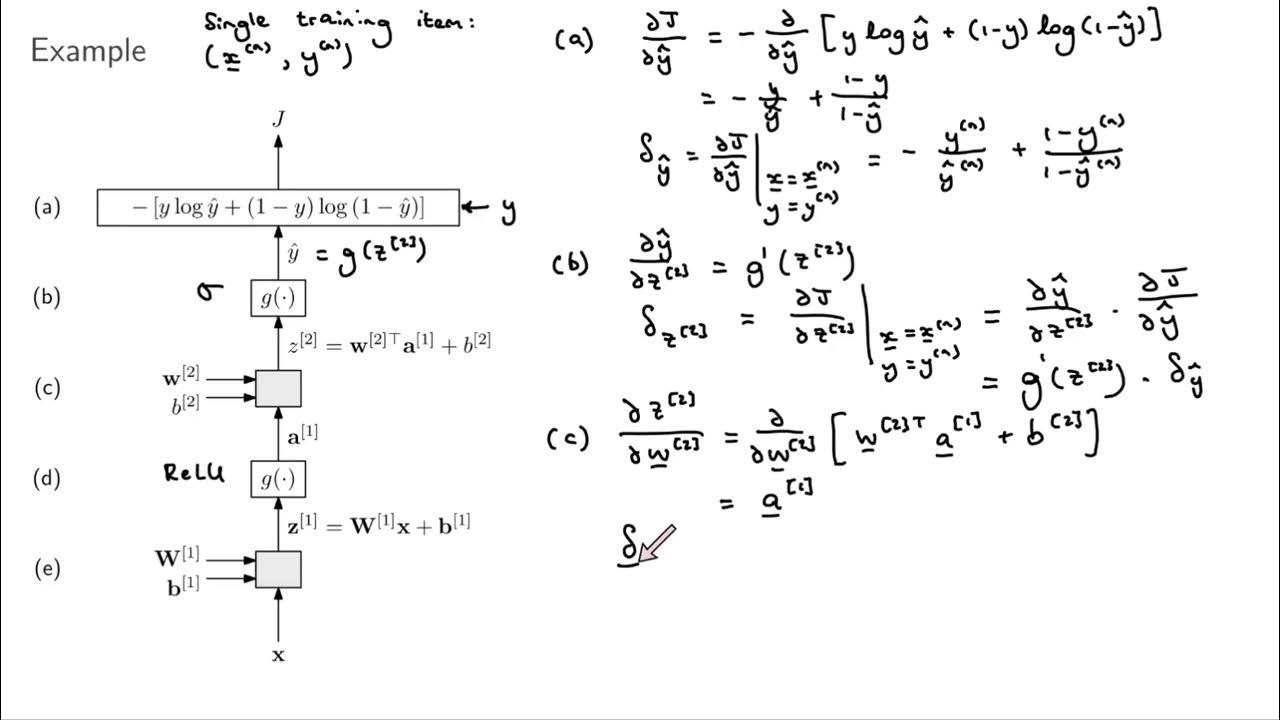 Example
Single training item:
(x^(n), y^(n))
J
(a)
− [y log ŷ + (1 − y) log (1 − ŷ)]
← y
ŷ = g(z^[2])
(b)
σ
g(·)
z^[2] = w^[2]⊤ a^[1] + b^[2]
(c)
w^[2]
b^[2]
a^[1]
(d)
ReLU
g(·)
z^[1] = W^[1]x + b^[1]
(e)
W^[1]
b^[1]
x
(a) ∂J/∂ŷ = − ∂/∂ŷ [y log ŷ + (1−y) log(1−ŷ)]
= − y/ŷ + (1−y)/(1−ŷ)
δ_ŷ = ∂J/∂ŷ | x = x^(n) y = y^(n) = − y^(n)/ŷ^(n) + (1−y^(n))/(1−ŷ^(n))
(b) ∂ŷ/∂z^[2] = g'(z^[2])
δ_z^[2] = ∂J/∂z^[2] | x = x^(n) y = y^(n) = ∂ŷ/∂z^[2] · ∂J/∂ŷ
= g'(z^[2]) · δ_ŷ
(c) ∂z^[2]/∂w^[2] = ∂/∂w^[2] [w^[2]⊤ a^[1] + b^[2]]
= a^[1]
δ